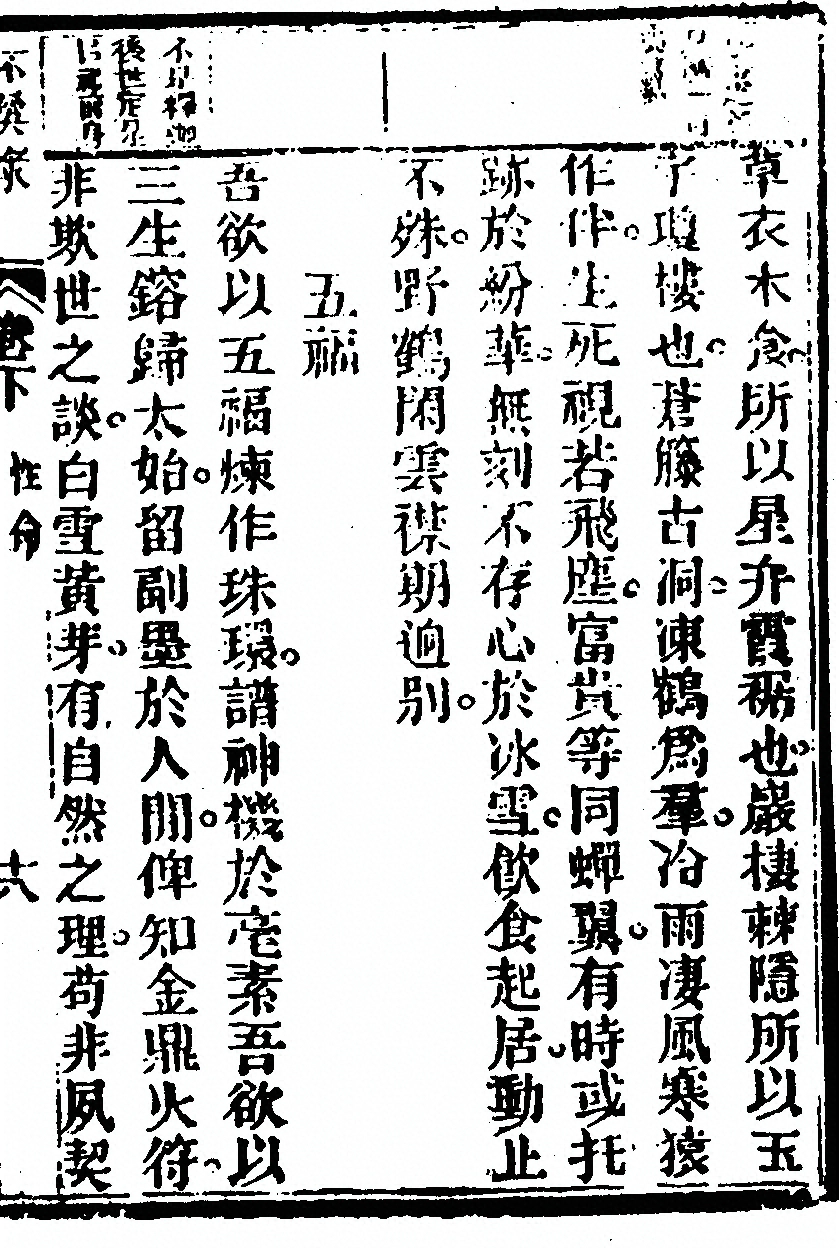 草衣木食所以星弁霞裾也巖棲棘隱所以玉
宇瓊樓也蒼藤古洞凍鶴爲羣冷雨凄風寒猿
作伴生死視若飛塵富貴等同蟬翼有時或托
跡於紛華無刻不存心於冰雪飲食起居動止
不殊野鶴閑雲襟期逈別
五福
吾欲以五福煉作珠環譜神機於毫素吾欲以
三生鎔歸太始留副墨於人間俾知金鼎火符
非欺世之談白雪黃芽有自然之理苟非夙契
不是
後世定
卷下 性命 十八